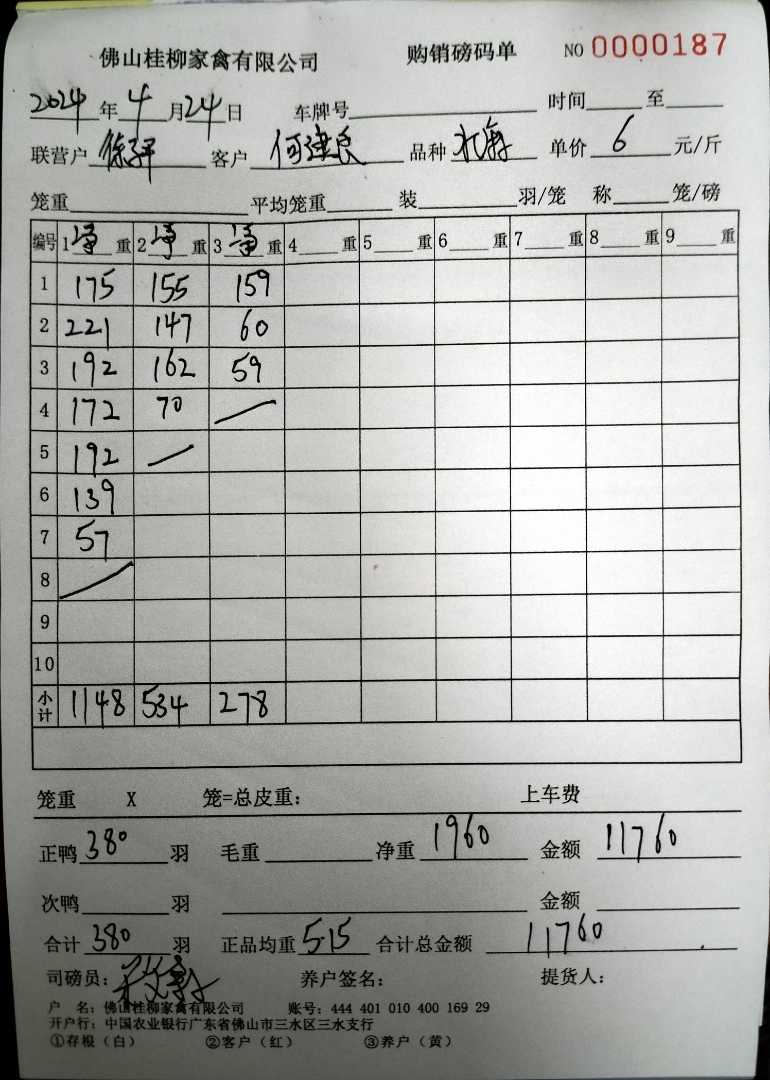 佛山桂柳家禽有限公司 购销磅码单 NO 0000187
2024年4月24日 车牌号 时间 至
联营户 徐 客户 何建良 品种 单价 6 元/斤
笼重 平均笼重 装 羽/笼 称 笼/磅
编号 1净重 2净重 3净重 4 重 5 重 6 重 7 重 8 重 9 重
1 175 155 159
2 221 147 60
3 192 162 59
4 172 70
5 192
6 139
7 57
8
9
10
小计 1148 534 278
笼重 X 笼=总皮重: 上车费
正鸭 380 羽 毛重 净重 1960 金额 11760
次鸭 羽 金额
合计 380 羽 正品均重 515 合计总金额 11760
司磅员: 养户签名: 提货人:
户 名: 佛山桂柳家禽有限公司 账号: 444 401 010 400 169 29
开户行: 中国农业银行广东省佛山市三水区三水支行
①存根(白) ②客户(红) ③养户(黄)